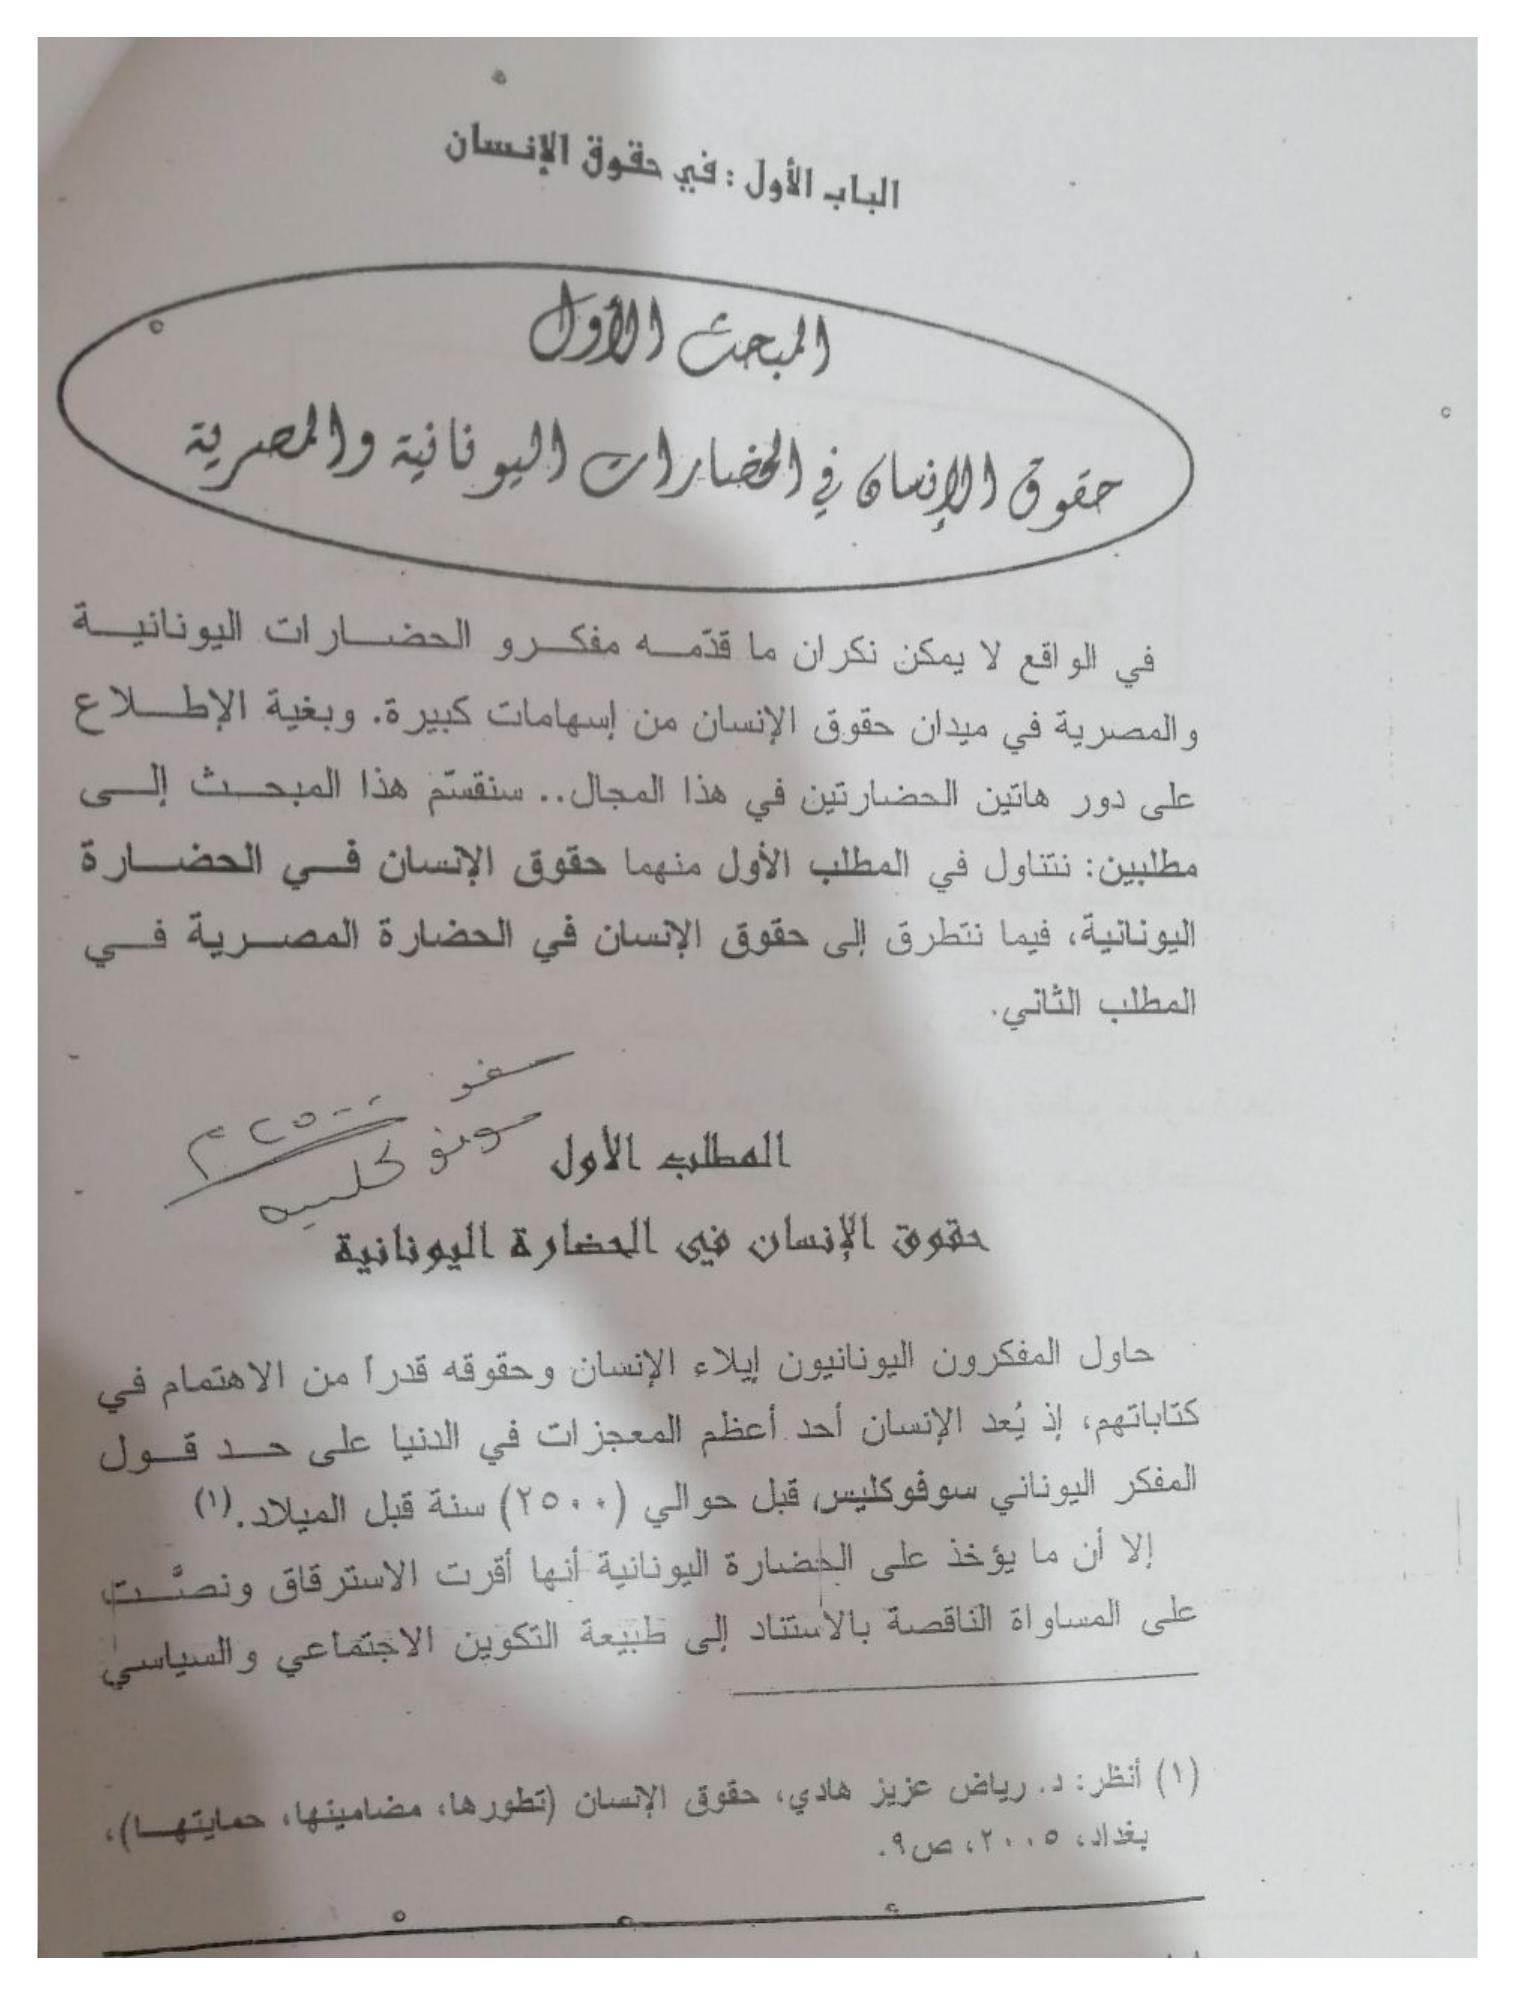 الباب الأول : في حقوق الإنسان
المبحث الأول
حقوق الإنسان في الحضارات اليونانية والمصرية
في الواقع لا يمكن نكران ما قدّمه مفكرو الحضارات اليونانية
والمصرية في ميدان حقوق الإنسان من إسهامات كبيرة. وبغية الإطلاع
على دور هاتين الحضارتين في هذا المجال.. سنقسّم هذا المبحث إلى
مطلبين: نتناول في المطلب الأول منهما حقوق الإنسان في الحضارة
اليونانية، فيما نتطرق إلى حقوق الإنسان في الحضارة المصرية في
المطلب الثاني.
٢٥٠٠
المطلب الأول
حقوق الإنسان في الحضارة اليونانية
حاول المفكرون اليونانيون إيلاء الإنسان وحقوقه قدراً من الاهتمام في
كتاباتهم، إذ يُعد الإنسان أحد أعظم المعجزات في الدنيا على حد قول
المفكر اليوناني سوفوكليس قبل حوالي (٢٥٠٠) سنة قبل الميلاد.(١)
إلا أن ما يؤخذ على الحضارة اليونانية أنها أقرت الاسترقاق ونصَّت
على المساواة الناقصة بالاستناد إلى طبيعة التكوين الاجتماعي والسياسي
(١) أنظر: د. رياض عزيز هادي، حقوق الإنسان (تطورها، مضامينها، حمايتها)،
بغداد، ٢٠٠٥، ص٩.